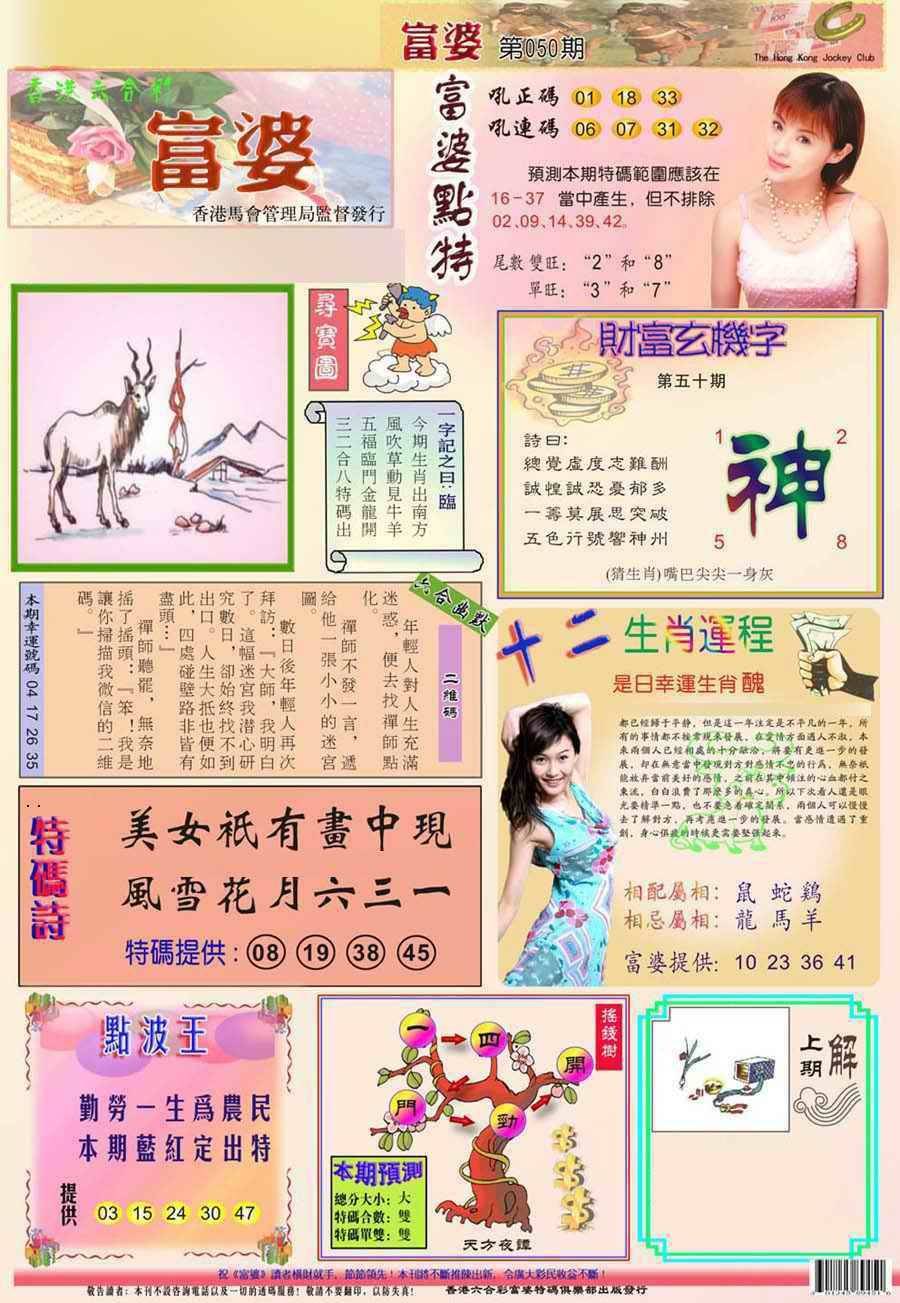 富婆 第050期
The Hong Kong Jockey Club
香港六合彩
富婆
香港馬會管理局監督發行
富婆點特
吼正碼 01 18 33
吼連碼 06 07 31 32
預測本期特碼範圍應該在
16-37 當中產生，但不排除
02、09、14、39、42。
尾數雙旺：“2”和“8”
單旺：“3”和“7”
尋寶圖
一字記之曰：臨
今期生肖出南方
風吹草動見牛羊
五福臨門金龍開
三二合八特碼出
財富玄機字
第五十期
詩曰：
總覺虛度志難酬
誠惶誠恐憂郁多
一籌莫展思突破
五色行號響神州
1 2
神
5 8
(猜生肖)嘴巴尖尖一身灰
六合幽默
二維碼
年輕人對人生充滿
迷惑，便去找禪師點
化。
禪師不發一言，遞
給他一張小小的迷宮
圖。
數日後年輕人再次
拜訪：『大師，我明白
了。這幅迷宮我潛心研
究數日，卻始終找不到
出口。人生大抵也便如
此，四處碰壁路非皆有
盡頭…』
禪師聽罷，無奈地
搖了搖頭：『笨！我是
讓你掃描我微信的二維
碼。』
本期幸運號碼 04 17 26 35
十二生肖運程
是日幸運生肖醜
都已經歸于平靜，但是這一年注定是不平凡的一年，所
有的事情都不按常規來發展，在愛情方面遇人不淑，本
來兩個人已經相處的十分融洽，將要有更進一步的發
展，却在無意當中發現對方對感情不忠的行為，無奈祇
能放弃當前美好的感情，之前在其中傾注的心血都付之
東流，白白浪費了那麼多的真心。所以下次看人還是眼
光要精準一點，也不要急着確定關系，兩個人可以慢慢
去了解對方，再考慮進一步的發展。當感情遭遇了重
創，身心俱疲的時候更需要堅强起來。
相配屬相：鼠 蛇 鷄
相忌屬相：龍 馬 羊
富婆提供：10 23 36 41
特碼詩
美女祇有畫中現
風雪花月六三一
特碼提供：08 19 38 45
點波王
勤勞一生爲農民
本期藍紅定出特
提供 03 15 24 30 47
搖錢樹
一 四 開
門 勁
本期預測
總分大小：大
特碼合數：雙
特碼單雙：雙
天方夜譚
上期解
祝《富婆》讀者橫財就手，節節領先！本刊將不斷推陳出新，令廣大彩民收益不斷！
敬告讀者：本刊不設咨詢電話以及一切的透碼服務！敬請不要翻印，以防失真！ 香港六合彩富婆特碼俱樂部出版發行